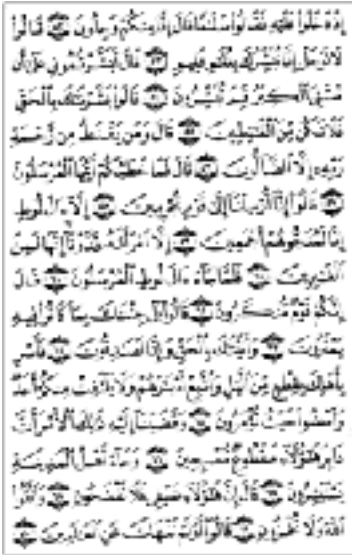 إِذْ دَخَلُوا عَلَيْهِ فَقَالُوا سَلَامًا قَالَ إِنَّا مِنكُمْ وَجِلُونَ ۝ قَالُوا
لَا تَوْجَلْ إِنَّا نُبَشِّرُكَ بِغُلَامٍ عَلِيمٍ ۝ قَالَ أَبَشَّرْتُمُونِي عَلَىٰ أَن
مَّسَّنِيَ الْكِبَرُ فَبِمَ تُبَشِّرُونَ ۝ قَالُوا بَشَّرْنَاكَ بِالْحَقِّ
فَلَا تَكُن مِّنَ الْقَانِطِينَ ۝ قَالَ وَمَن يَقْنَطُ مِن رَّحْمَةِ
رَبِّهِ إِلَّا الضَّالُّونَ ۝ قَالَ فَمَا خَطْبُكُمْ أَيُّهَا الْمُرْسَلُونَ
۝ قَالُوا إِنَّا أُرْسِلْنَا إِلَىٰ قَوْمٍ مُّجْرِمِينَ ۝ إِلَّا آلَ لُوطٍ
إِنَّا لَمُنَجُّوهُمْ أَجْمَعِينَ ۝ إِلَّا امْرَأَتَهُ قَدَّرْنَا إِنَّهَا لَمِنَ
الْغَابِرِينَ ۝ فَلَمَّا جَاءَ آلَ لُوطٍ الْمُرْسَلُونَ ۝ قَالَ
إِنَّكُمْ قَوْمٌ مُّنكَرُونَ ۝ قَالُوا بَلْ جِئْنَاكَ بِمَا كَانُوا فِيهِ
يَمْتَرُونَ ۝ وَأَتَيْنَاكَ بِالْحَقِّ وَإِنَّا لَصَادِقُونَ ۝ فَأَسْرِ
بِأَهْلِكَ بِقِطْعٍ مِّنَ اللَّيْلِ وَاتَّبِعْ أَدْبَارَهُمْ وَلَا يَلْتَفِتْ مِنكُمْ أَحَدٌ
وَامْضُوا حَيْثُ تُؤْمَرُونَ ۝ وَقَضَيْنَا إِلَيْهِ ذَٰلِكَ الْأَمْرَ أَنَّ
دَابِرَ هَٰؤُلَاءِ مَقْطُوعٌ مُّصْبِحِينَ ۝ وَجَاءَ أَهْلُ الْمَدِينَةِ
يَسْتَبْشِرُونَ ۝ قَالَ إِنَّ هَٰؤُلَاءِ ضَيْفِي فَلَا تَفْضَحُونِ ۝ وَاتَّقُوا
اللَّهَ وَلَا تُخْزُونِ ۝ قَالُوا أَوَلَمْ نَنْهَكَ عَنِ الْعَالَمِينَ ۝